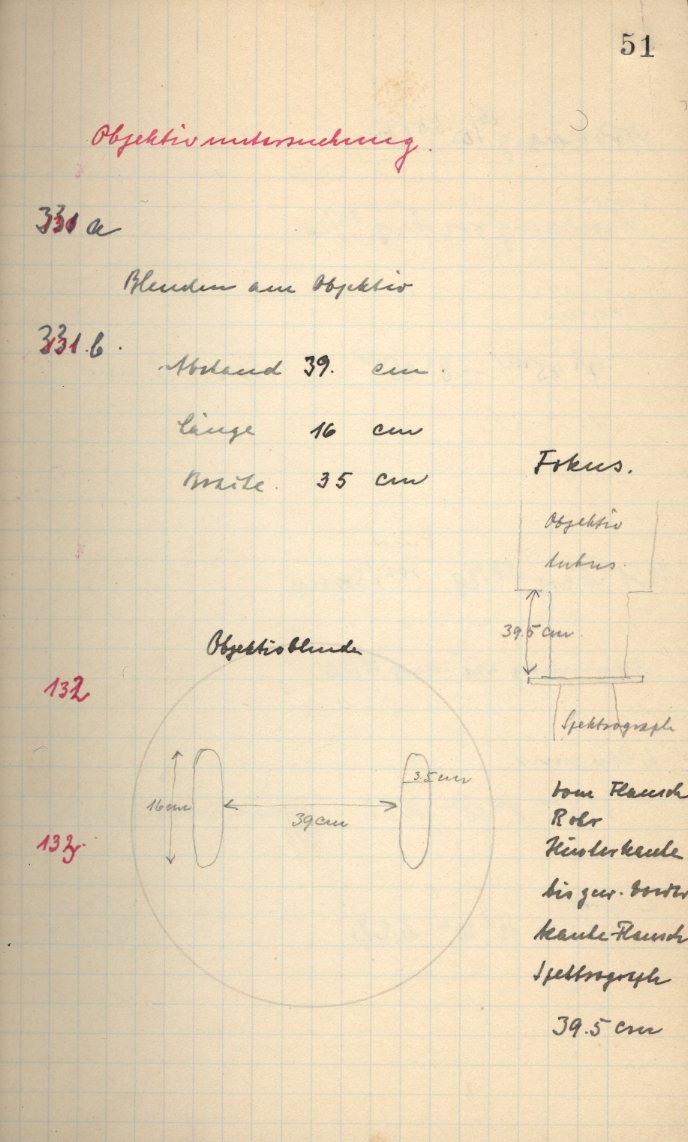 51
Objektivuntersuchung.
331 a
Blenden am Objektiv
331.b.
Abstand 39. cm.
Länge 16 cm
Breite. 35 cm
Fokus.
Objektiv
tubus.
39.5 cm
Spektrograph
Objektivblende
132
16 cm
39 cm
3.5 cm
133.
vom Flansch
Rohr
Hinterkante
bis zur Vorder
kante Flansch
Spektrograph
39.5 cm